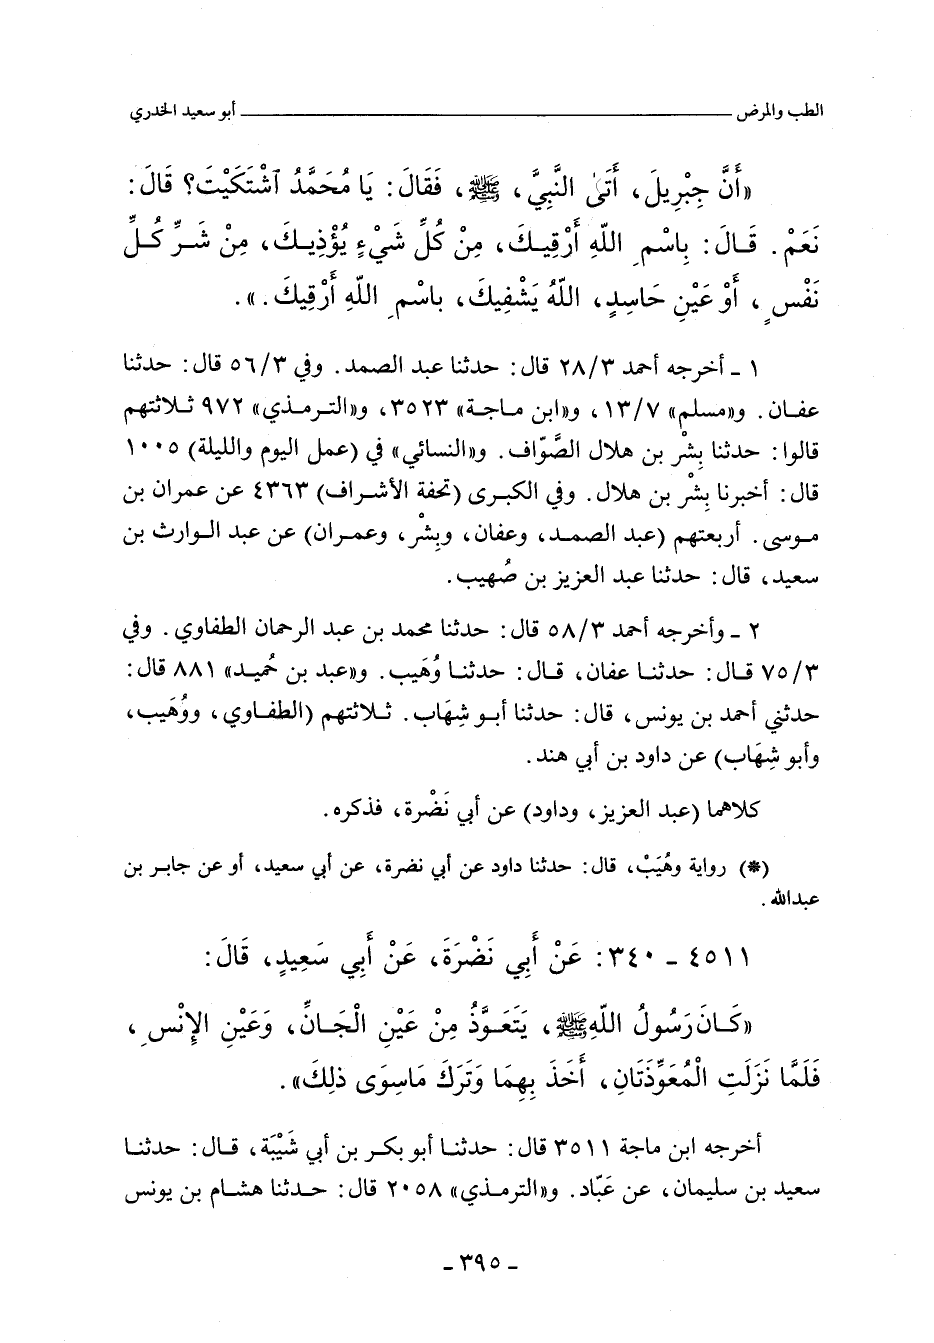 الطب والمرض ــــــــــــــــــــ أبو سعيد الخدري
«أَنَّ جِبْرِيلَ، أَتَىٰ النَّبِيَّ، ﷺ، فَقَالَ: يَا مُحَمَّدُ ٱشْتَكَيْتَ؟ قَالَ:
نَعَمْ. قَالَ: بِاسْمِ اللّهِ أَرْقِيكَ، مِنْ كُلِّ شَيْءٍ يُؤْذِيكَ، مِنْ شَرِّ كُلِّ
نَفْسٍ، أَوْ عَيْنِ حَاسِدٍ، اللّهُ يَشْفِيكَ، بِاسْمِ اللّهِ أَرْقِيكَ.».
١ ـ أخرجه أحمد ٢٨/٣ قال: حدثنا عبد الصمد. وفي ٥٦/٣ قال: حدثنا
عفان. و«مسلم» ١٣/٧، و«ابن ماجة» ٣٥٢٣، و«الترمذي» ٩٧٢ ثلاثتهم
قالوا: حدثنا بِشْر بن هلال الصَّوّاف. و«النسائي» في (عمل اليوم والليلة) ١٠٠٥
قال: أخبرنا بِشْر بن هلال. وفي الكبرى (تحفة الأشراف) ٤٣٦٣ عن عمران بن
موسى. أربعتهم (عبد الصمد، وعفان، وبِشْر، وعمران) عن عبد الوارث بن
سعيد، قال: حدثنا عبد العزيز بن صُهيب.
٢ ـ وأخرجه أحمد ٥٨/٣ قال: حدثنا محمد بن عبد الرحمان الطفاوي. وفي
٧٥/٣ قال: حدثنا عفان، قال: حدثنا وُهَيب. و«عبد بن حُميد» ٨٨١ قال:
حدثني أحمد بن يونس، قال: حدثنا أبو شِهَاب. ثلاثتهم (الطفاوي، ووُهَيب،
وأبو شِهَاب) عن داود بن أبي هند.
كلاهما (عبد العزيز، وداود) عن أبي نَضْرة، فذكره.
(*) رواية وهُيَبْ، قال: حدثنا داود عن أبي نضرة، عن أبي سعيد، أو عن جابر بن
عبدالله.
٤٥١١ ـ ٣٤٠: عَنْ أَبِي نَضْرَةَ، عَنْ أَبِي سَعِيدٍ، قَالَ:
«كَانَ رَسُولُ اللّهِ ﷺ، يَتَعَوَّذُ مِنْ عَيْنِ الْجَانِّ، وَعَيْنِ الإِنْسِ،
فَلَمَّا نَزَلَتِ الْمُعَوِّذَتَانِ، أَخَذَ بِهِمَا وَتَرَكَ مَاسِوَى ذٰلِكَ».
أخرجه ابن ماجة ٣٥١١ قال: حدثنا أبو بكر بن أبي شَيْبَة، قال: حدثنا
سعيد بن سليمان، عن عَبّاد. و«الترمذي» ٢٠٥٨ قال: حدثنا هشام بن يونس
ـ ٣٩٥ ـ